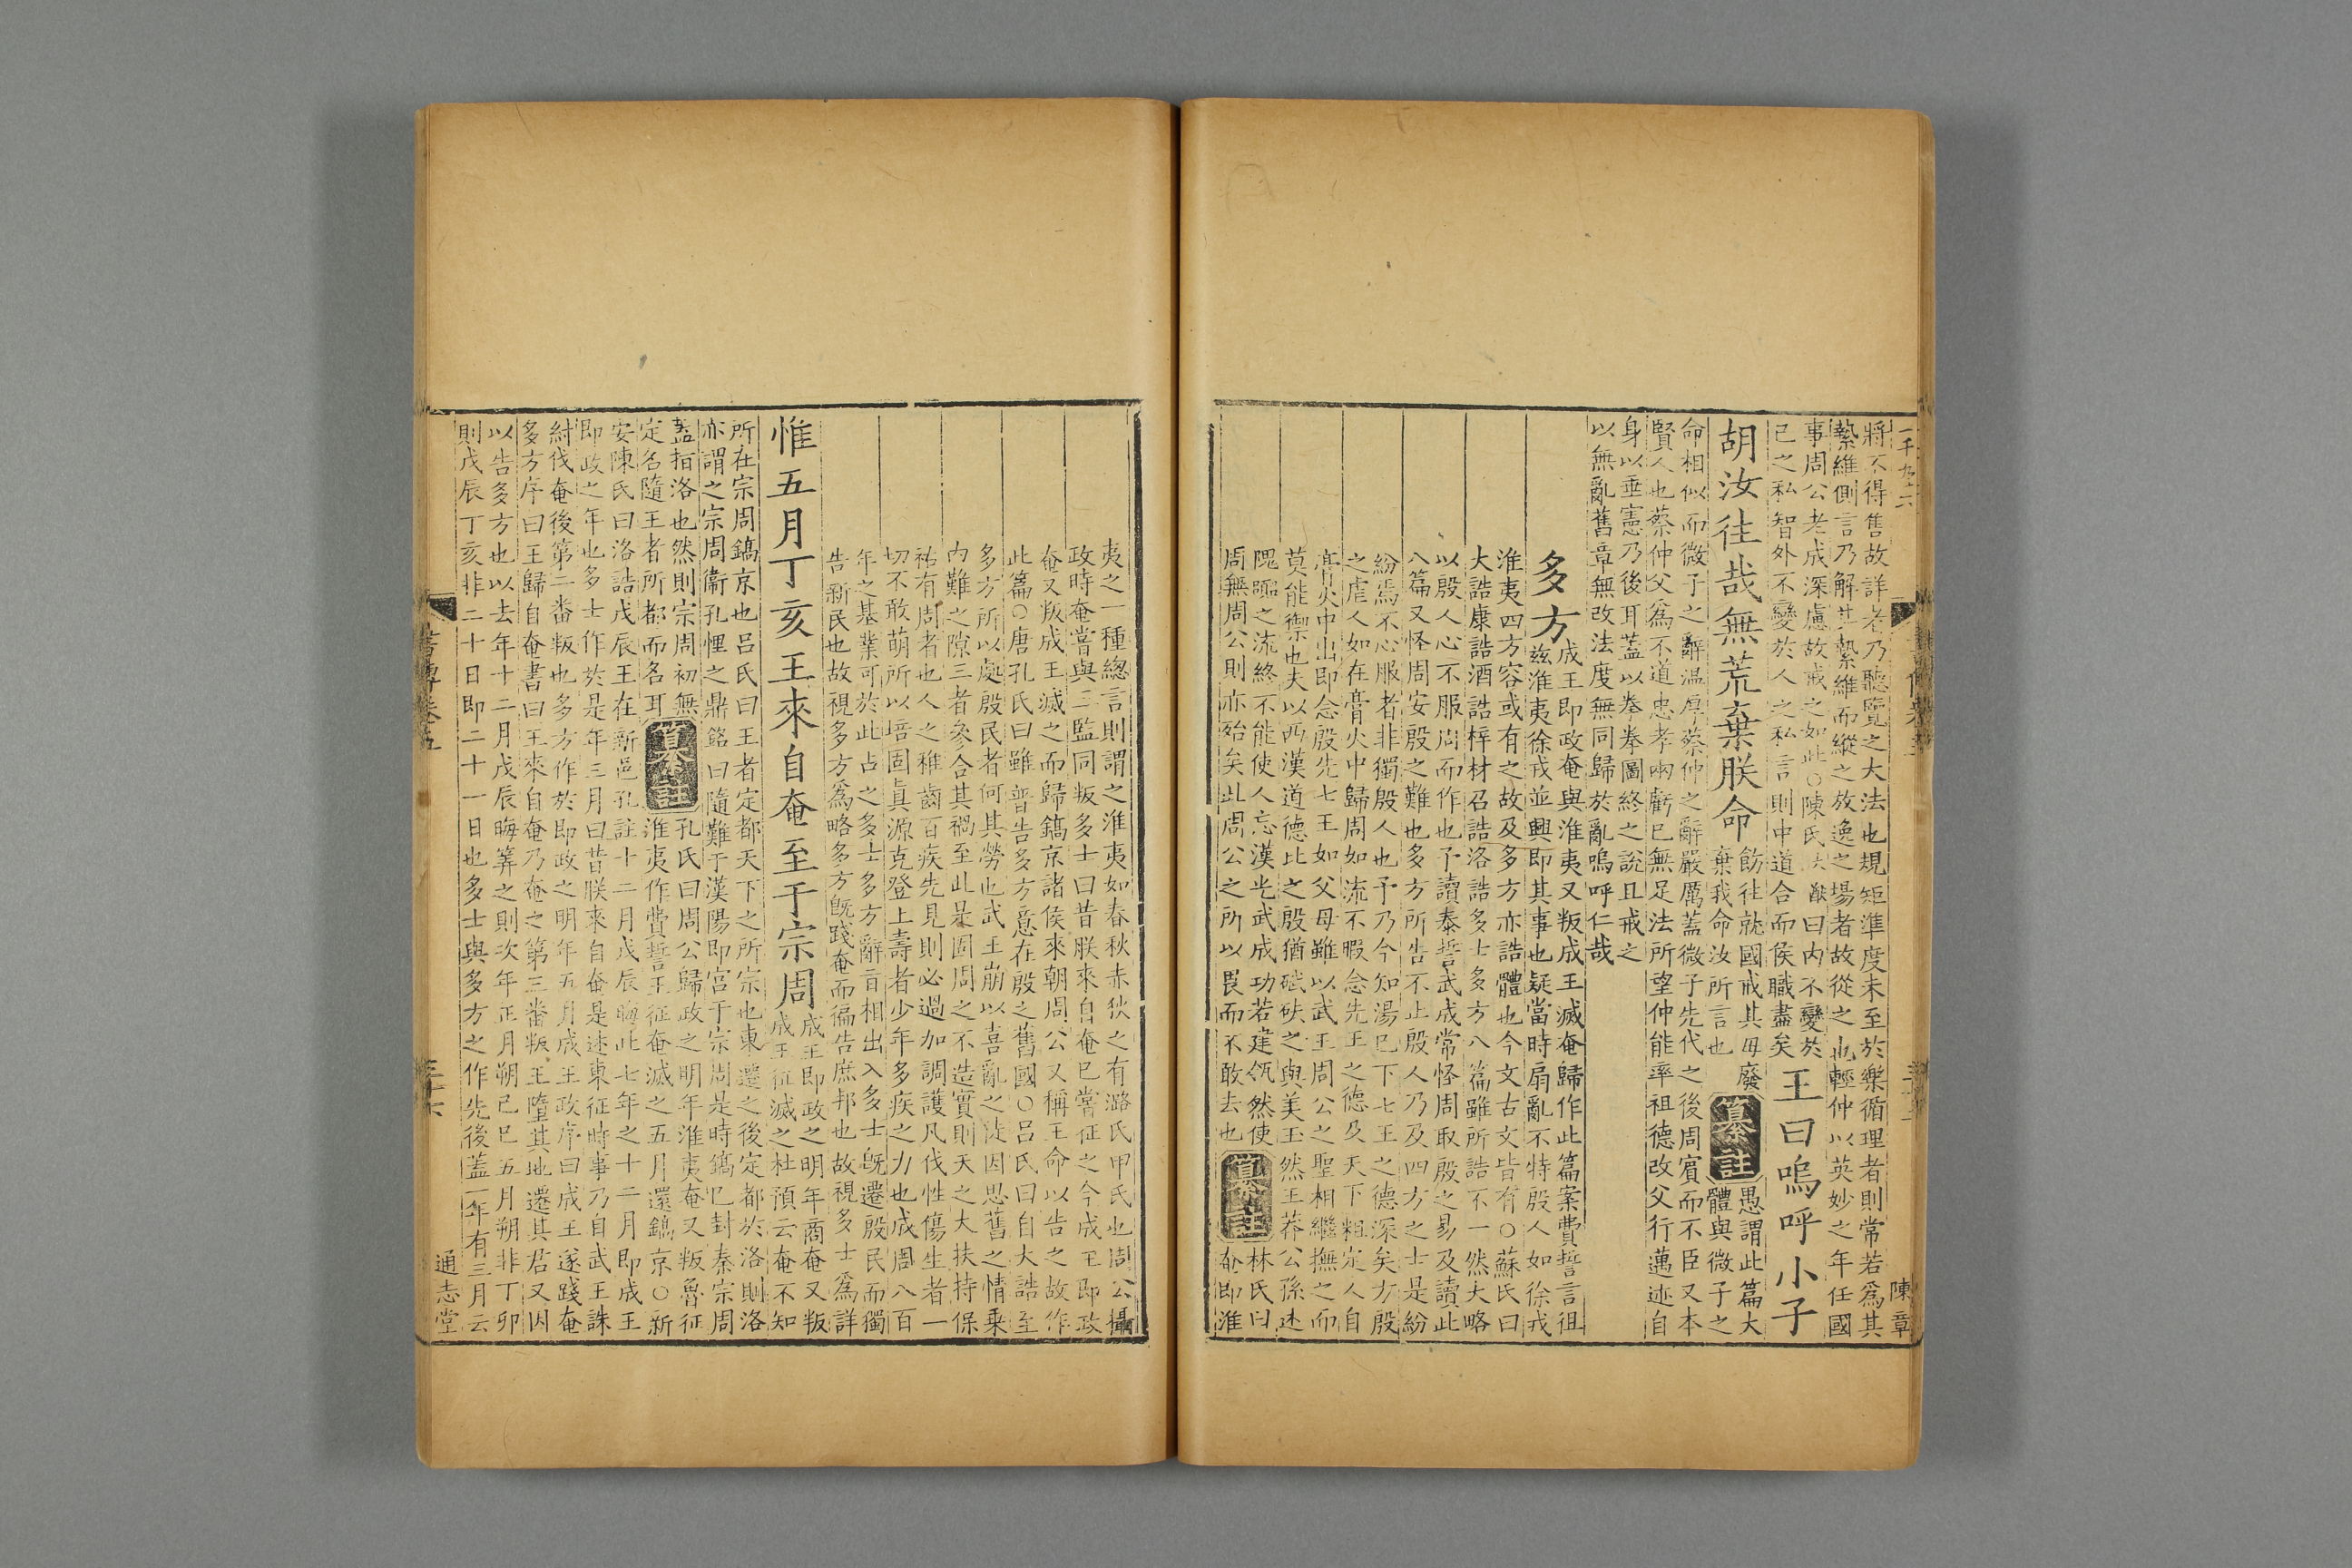 將不得售故詳者乃聽覽之大法也規矩準度未至於樂循理者則常若爲其
縶維側言乃解其縶維而縱之放逸之塲者故從之也輕仲以英妙之年任國
事周公老成深慮故戒之如此○陳氏大猷曰内不變於
己之私智外不變於人之私言則中道合而侯職盡矣
王曰嗚呼小子
胡汝往哉無荒棄朕命
飭往就國戒其毋廢
棄我命汝所言也
纂註
愚謂此篇大
體與微子之
命相似而微子之辭温厚蔡仲之辭嚴厲蓋微子先代之後周賓而不臣又本
賢人也蔡仲父爲不道忠孝兩虧已無足法所望仲能率祖德改父行邁迹自
身以垂憲乃後耳蓋以拳拳圖終之說且戒之
以無亂舊章無改法度無同歸於亂嗚呼仁哉
多方
成王即政奄與淮夷又叛成王滅奄歸作此篇案費誓言徂
兹淮夷徐戎並興即其事也疑當時扇亂不特殷人如徐戎
淮夷四方容或有之故及多方亦誥體也今文古文皆有○蘇氏曰
大誥康誥酒誥梓材召誥洛誥多士多方八篇雖所誥不一然大略
以殷人心不服周而作也予讀泰誓武成常怪周取殷之易及讀此
八篇又怪周安殷之難也多方所告不止殷人乃及四方之士是紛
紛焉不心服者非獨殷人也予乃今知湯已下七王之德深矣方殷
之虐人如在膏火中歸周如流不暇念先王之德及天下粗定人自
膏火中出即念殷先七王如父母雖以武王周公之聖相繼撫之而
莫能禦也夫以西漢道德比之殷猶碔砆之與美玉然王莽公孫述
隗囂之流終不能使人忘漢光武成功若建瓴然使
周無周公則亦殆矣此周公之所以畏而不敢去也
纂註
林氏曰
奄即淮
夷之一種總言則謂之淮夷如春秋赤狄之有潞氏甲氏也周公攝
政時奄嘗與三監同叛多士曰昔朕來自奄已嘗征之今成王即政
奄又叛成王滅之而歸鎬京諸侯來朝周公又稱王命以告之故作
此篇○唐孔氏曰雖普告多方意在殷之舊國○呂氏曰自大誥至
多方所以處殷民者何其勞也武王崩以喜亂之徒因思舊之情乗
内難之隙三者參合其禍至此是固周之不造實則天之大扶持保
祐有周者也人之稚齒百疾先見則必過加調護凡伐性傷生者一
切不敢萌所以培固眞源克登上壽者少年多疾之力也成周八百
年之基業可於此占之多士多方辭旨相出入多士旣遷殷民而獨
告新民也故視多方爲略多方旣踐奄而徧告庶邦也故視多士爲詳
惟五月丁亥王來自奄至于宗周
成王即政之明年商奄又叛
成王征滅之杜預云奄不知
所在宗周鎬京也呂氏曰王者定都天下之所宗也東遷之後定都於洛則洛
亦謂之宗周衞孔悝之鼎銘曰隨難于漢陽即宫于宗周是時鎬已封秦宗周
蓋指洛也然則宗周初無
定名隨王者所都而名耳
纂註
孔氏曰周公歸政之明年淮夷奄又叛魯征
淮夷作費誓王征奄滅之五月還鎬京○新
安陳氏曰洛誥戊辰王在新邑孔註十二月戊辰晦此七年之十二月即成王
即政之年也多士作於是年三月曰昔朕來自奄是述東征時事乃自武王誅
紂伐奄後第二畨叛也多方作於即政之明年五月成王政序曰成王遂踐奄
多方序曰王歸自奄書曰王來自奄乃奄之第三畨叛王墮其地遷其君又因
以告多方也以去年十二月戊辰晦筭之則次年正月朔己巳五月朔非丁卯
則戊辰丁亥非二十日即二十一日也多士與多方之作先後蓋一年有三月云
書傳卷五
三十六
通志堂
陳章